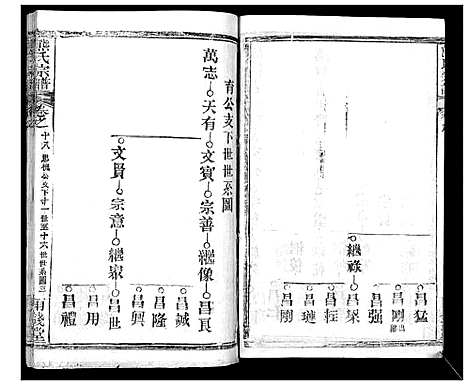 昌猛
昌剛出繼
昌强
繼祿
昌梁
昌桎
昌璉
昌剛
育公支下世世系圖
萬志 天有 文寅 宗善 繼像 昌良
昌誠
昌隆
昌興
文賢 宗意 繼泰 昌世
昌用
昌禮
熊氏宗譜
卷之十八
思槐公支下廿一世至十六世世系圖三